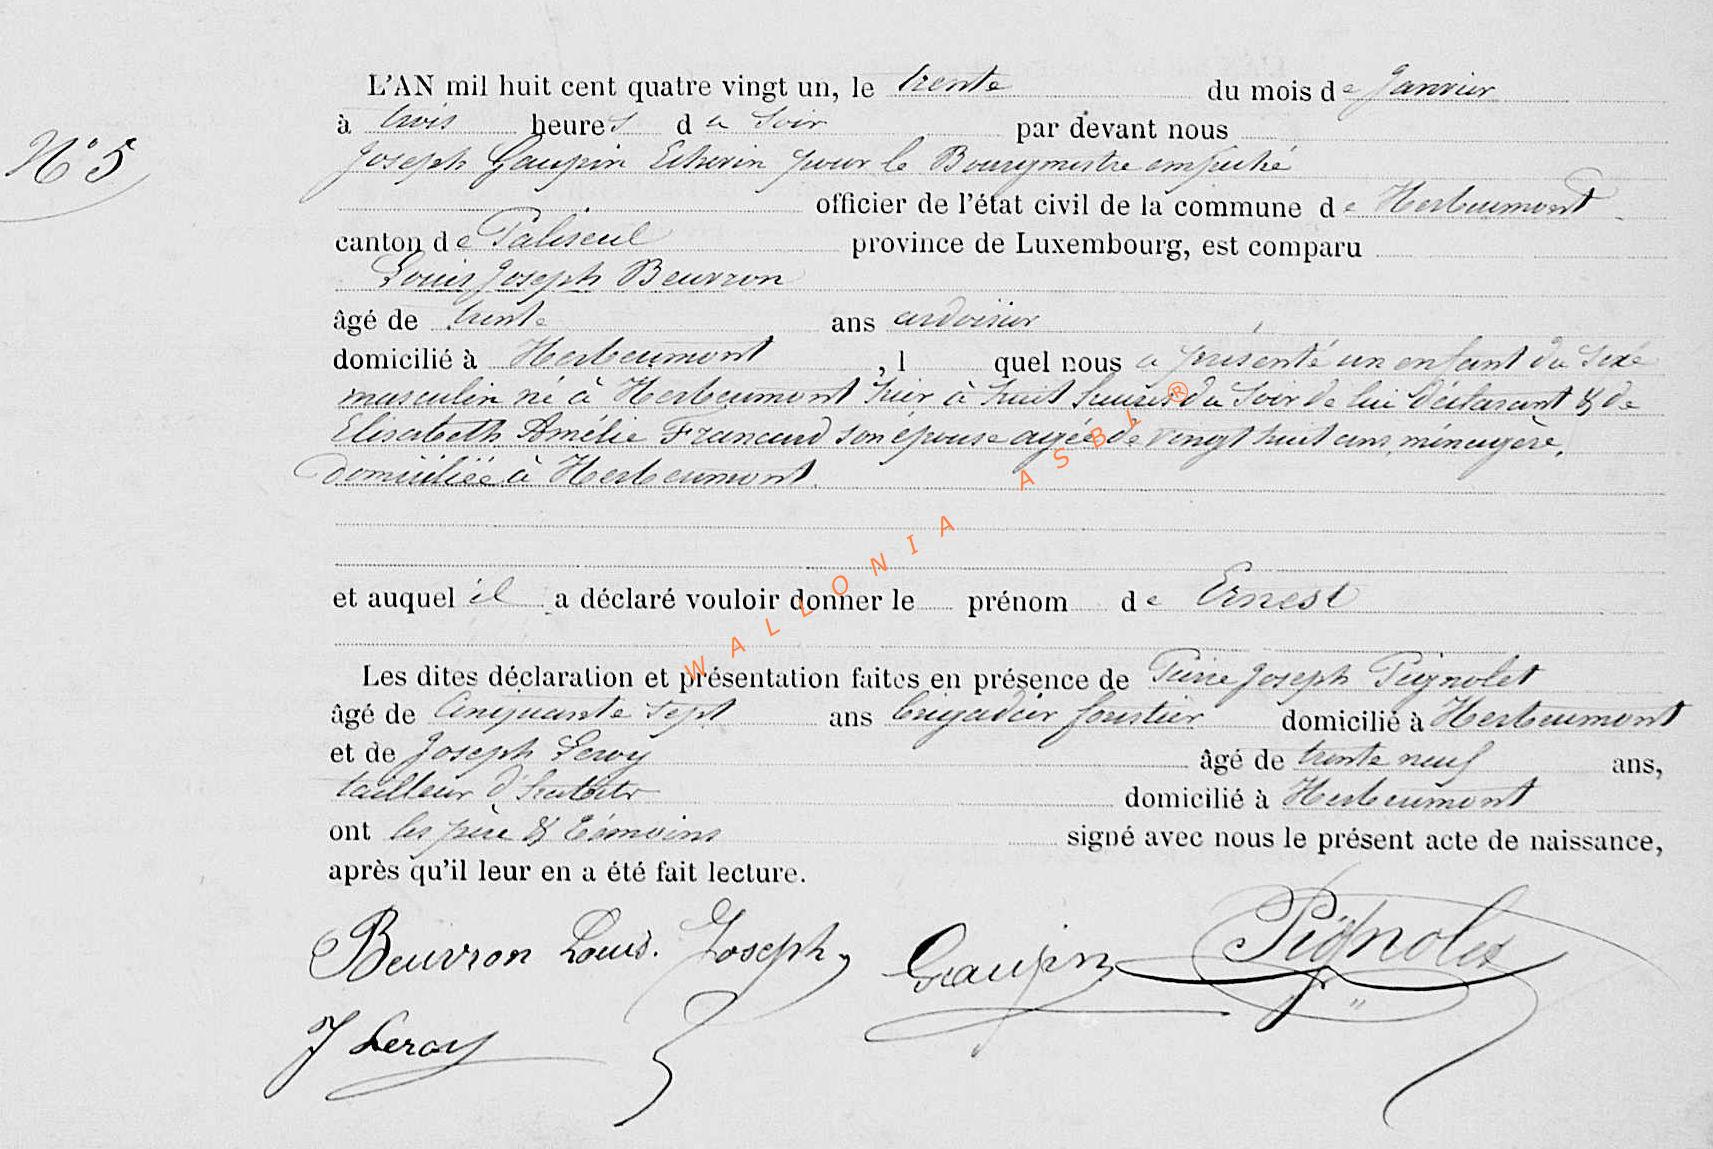 L'AN mil huit cent quatre vingt un, le trente du mois de Janvier
à trois heures du soir par devant nous
N° 5
Joseph Gaupin Echevin pour le Bourgmestre empêché
officier de l'état civil de la commune de Herbeumont
canton de Paliseul province de Luxembourg, est comparu
Louis Joseph Beuvron
âgé de trente ans ardoisier
domicilié à Herbeumont, l quel nous a présenté un enfant du sexe
masculin né à Herbeumont hier à huit heures du soir de lui déclarant & de
Elisabeth Amélie Francard son épouse agée de vingt huit ans, ménagère,
domiciliée à Herbeumont.
et auquel il a déclaré vouloir donner le prénom de Ernest
Les dites déclaration et présentation faites en présence de Pierre Joseph Pignolet
âgé de Cinquante sept ans brigadier forestier domicilié à Herbeumont
et de Joseph Leroy âgé de trente neuf ans,
tailleur d'habits domicilié à Herbeumont
ont les père & témoins signé avec nous le présent acte de naissance,
après qu'il leur en a été fait lecture.
Beuvron Louis. Joseph, Gaupin Pignolet
J Leroy
WALLONIA ASBL ®